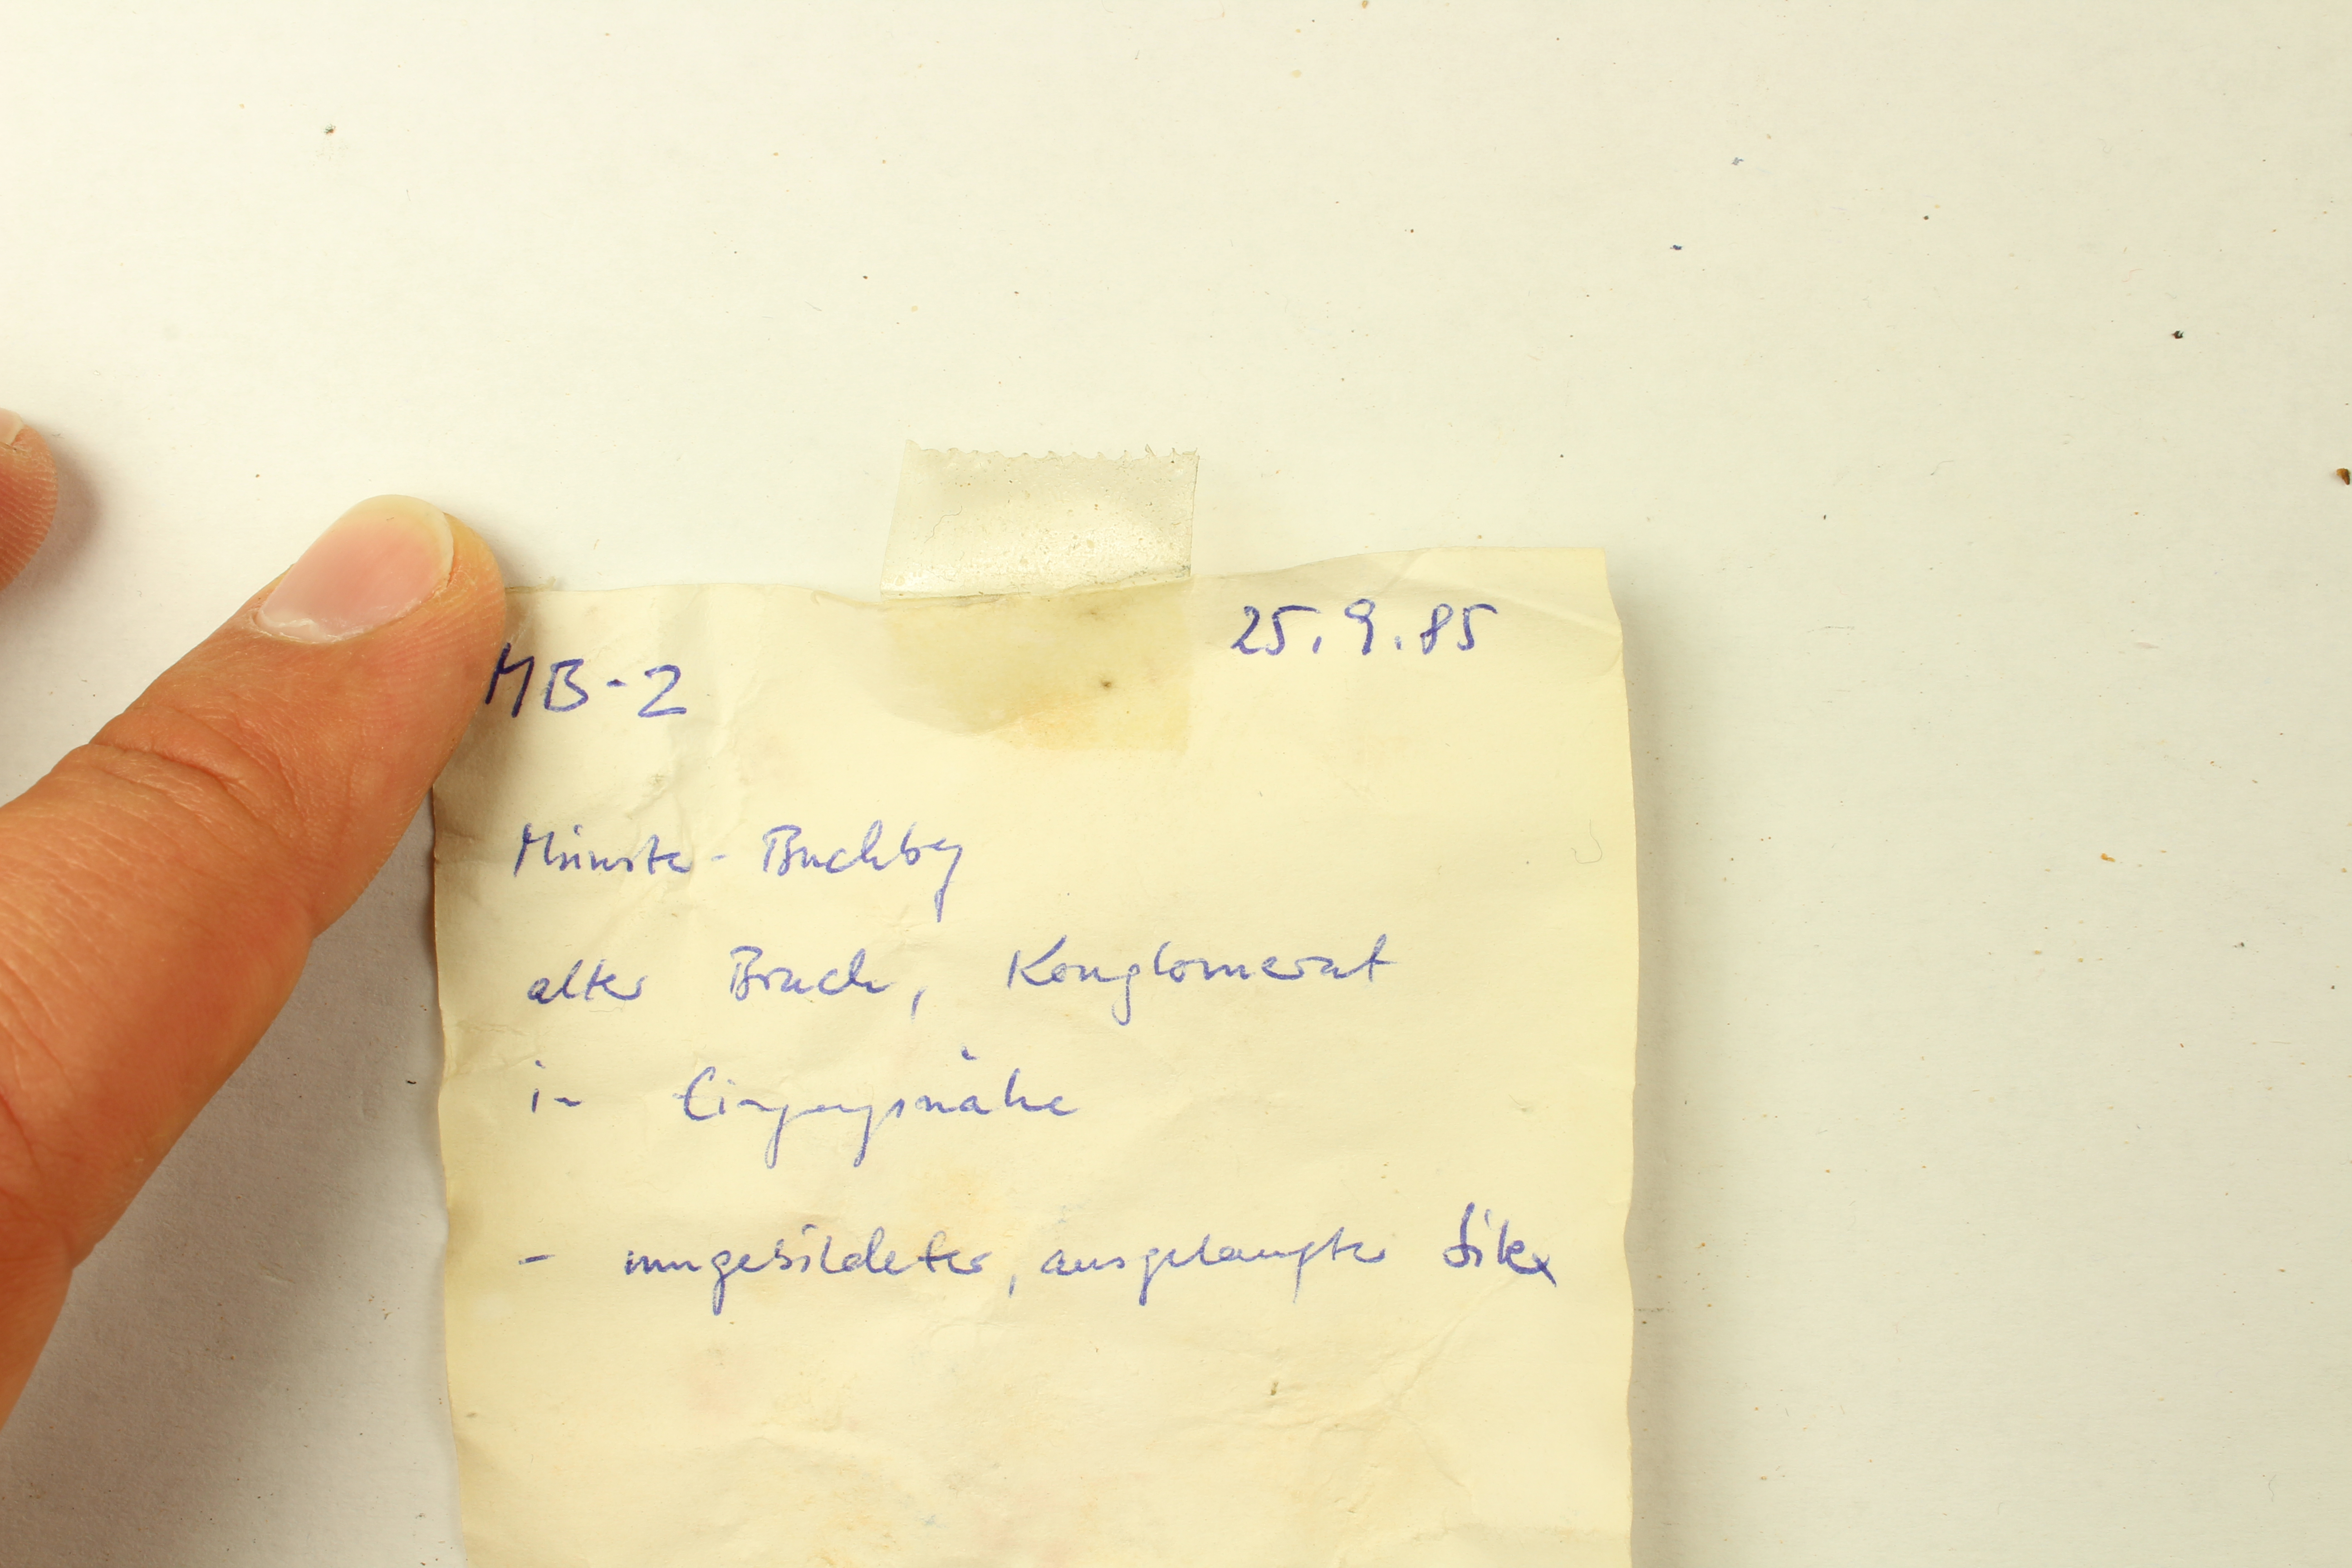 MB-2 25.9.85
Münster-Buchberg
alter Bruch, Konglomerat
in Eingangsnähe
- umgebildeter, ausgelaugter